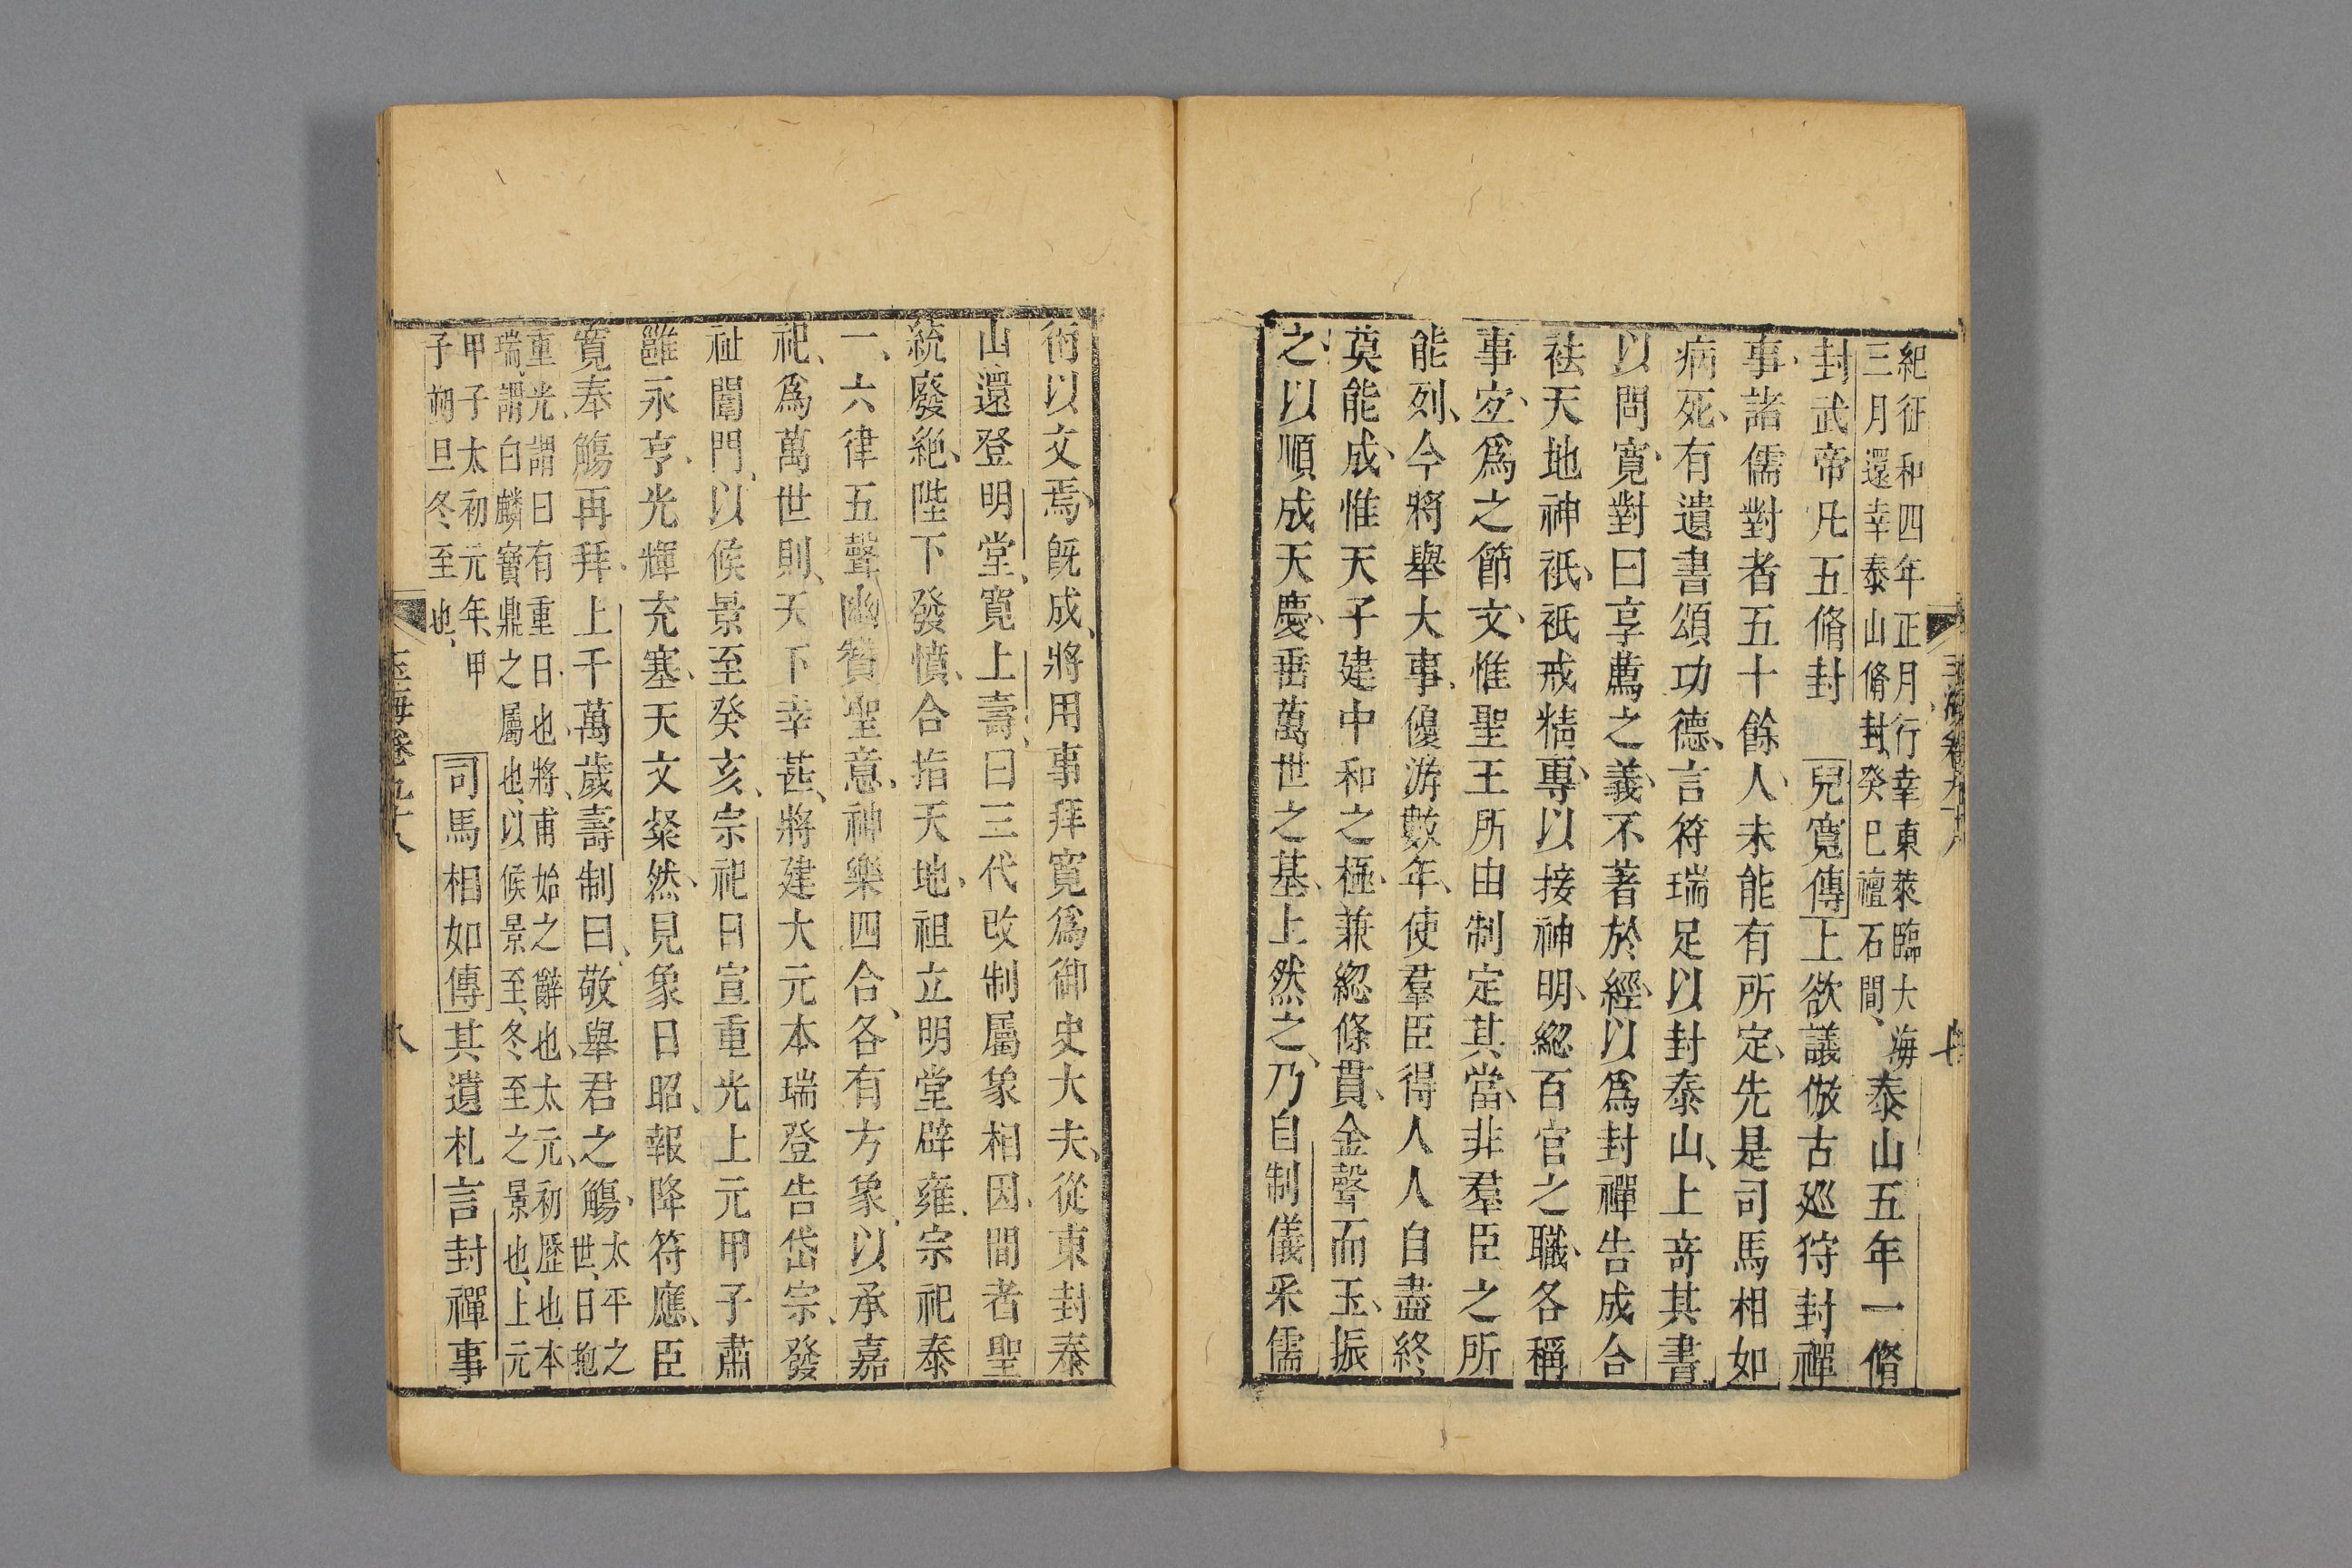 玉海卷九十八
七
紀征和四年正月行幸東萊臨大海
三月還幸泰山脩封癸巳禮石閭、
泰山五年一脩
封武帝凡五脩封　兒寬傳上欲議倣古廵狩封禪
事、諸儒對者五十餘人、未能有所定、先是司馬相如
病死、有遺書頌功德、言符瑞足以封泰山、上竒其書
以問寬、對曰享薦之義、不著於經、以爲封禪告成合
祛天地神祇、祇戒精專、以接神明、緫百官之職、各稱
事宐、爲之節文、惟聖王所由制定其當、非羣臣之所
能列、今將舉大事、優游數年、使羣臣得人人自盡終
莫能成、惟天子建中和之極、兼緫條貫、金聲而玉、振
之、以順成天慶、垂萬世之基、上然之、乃自制儀采儒
術以文焉、旣成、將用事拜寬爲御史大夫、從東封泰
山還登明堂、寬上壽、曰三代改制屬象相因、間者聖
統廢絶、陛下發憤、合指天地、祖立明堂辟雍、宗祀泰
一、六律五聲幽贊聖意、神樂四合、各有方象、以承嘉
祀、爲萬世則、天下幸甚、將建大元本瑞登告岱宗、發
祉闓門、以候景至癸亥、宗祀日宣重光上元甲子肅
雝永亨、光輝充塞、天文粲然、見象日昭、報降符應、臣
寬奉觴再拜、上千萬歲壽制曰、敬舉君之觴、
太平之
世、日抱
重光、謂日有重日也、將、甫始之辭也、太元、初歷也本
瑞、謂白麟寳鼎之屬也、以候景至、冬至之景也、上元
甲子太初元年、甲
子朔旦冬至也、
司馬相如傳其遺札言封禪事
玉海卷九十八
八